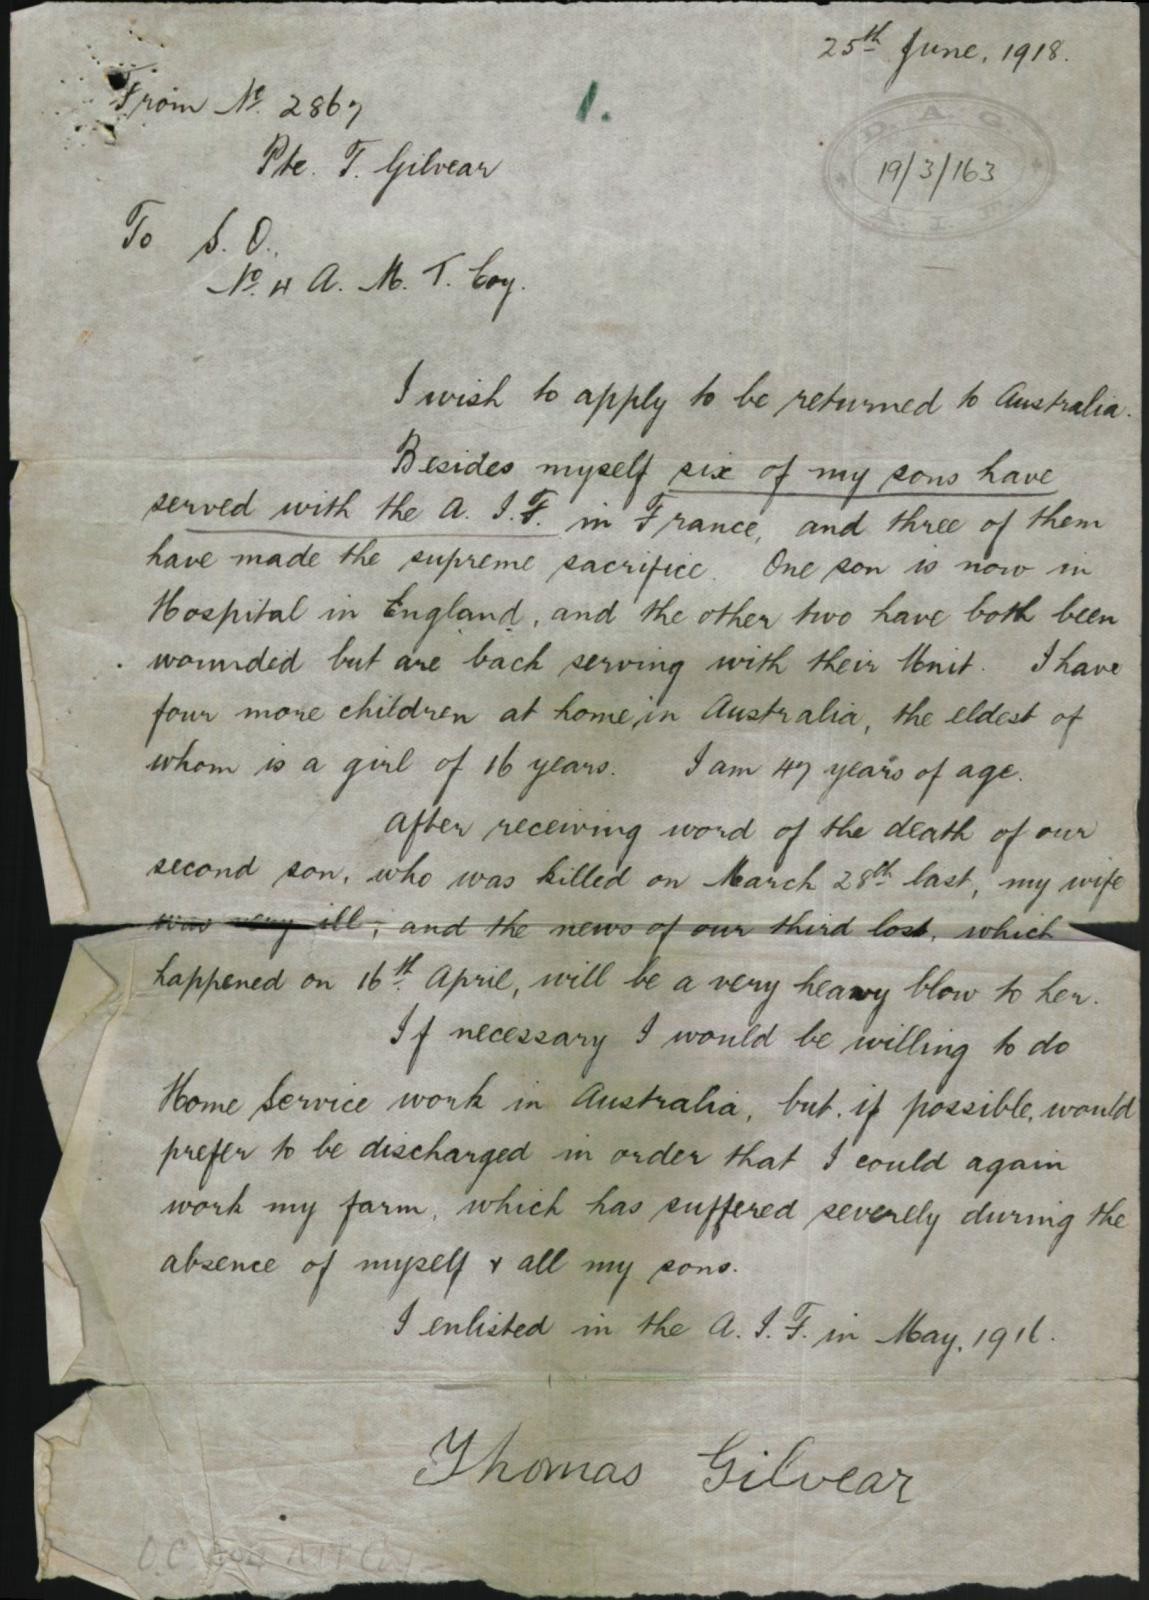 25th June, 1918.
From No. 2867
1.
Pte. T. Gilvear
D. A. G.
19/3/163
A. I. F.
To S. O.,
No. 4 A. M. T. Coy.
I wish to apply to be returned to Australia.
Besides myself six of my sons have
served with the A. I. F. in France, and three of them
have made the supreme sacrifice. One son is now in
Hospital in England, and the other two have both been
wounded but are back serving with their Unit. I have
four more children at home, in Australia, the eldest of
whom is a girl of 16 years. I am 47 years of age.
After receiving word of the death of our
second son, who was killed on March 28th last, my wife
was very ill, and the news of our third loss, which
happened on 16th April, will be a very heavy blow to her.
If necessary I would be willing to do
Home Service work in Australia, but, if possible, would
prefer to be discharged in order that I could again
work my farm, which has suffered severely during the
absence of myself & all my sons.
I enlisted in the A. I. F. in May, 1916.
Thomas Gilvear
O.C.